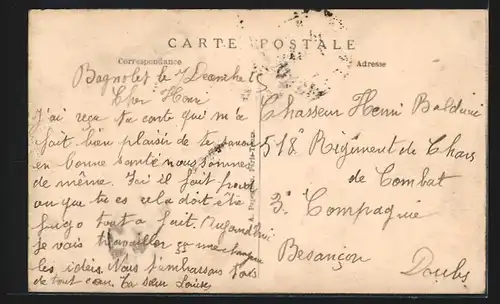 CARTE POSTALE
Correspondance
Adresse
Bagnolet le 7
Cher Henri
J'ai reçu ta carte qui m'a
fait bien plaisir de te savoir
en bonne santé nous sommes
de même. Ici il fait froid
ou que tu es cela doit être
tout a fait. Aujourd'hui
je vais travailler ça me change
les idées. Nous t'embrassons tous
de tout cœur. Ta sœur Louise
Chasseur Henri Balduini
518e Régiment de Chars
de Combat
3e Compagnie
Besançon
Doubs